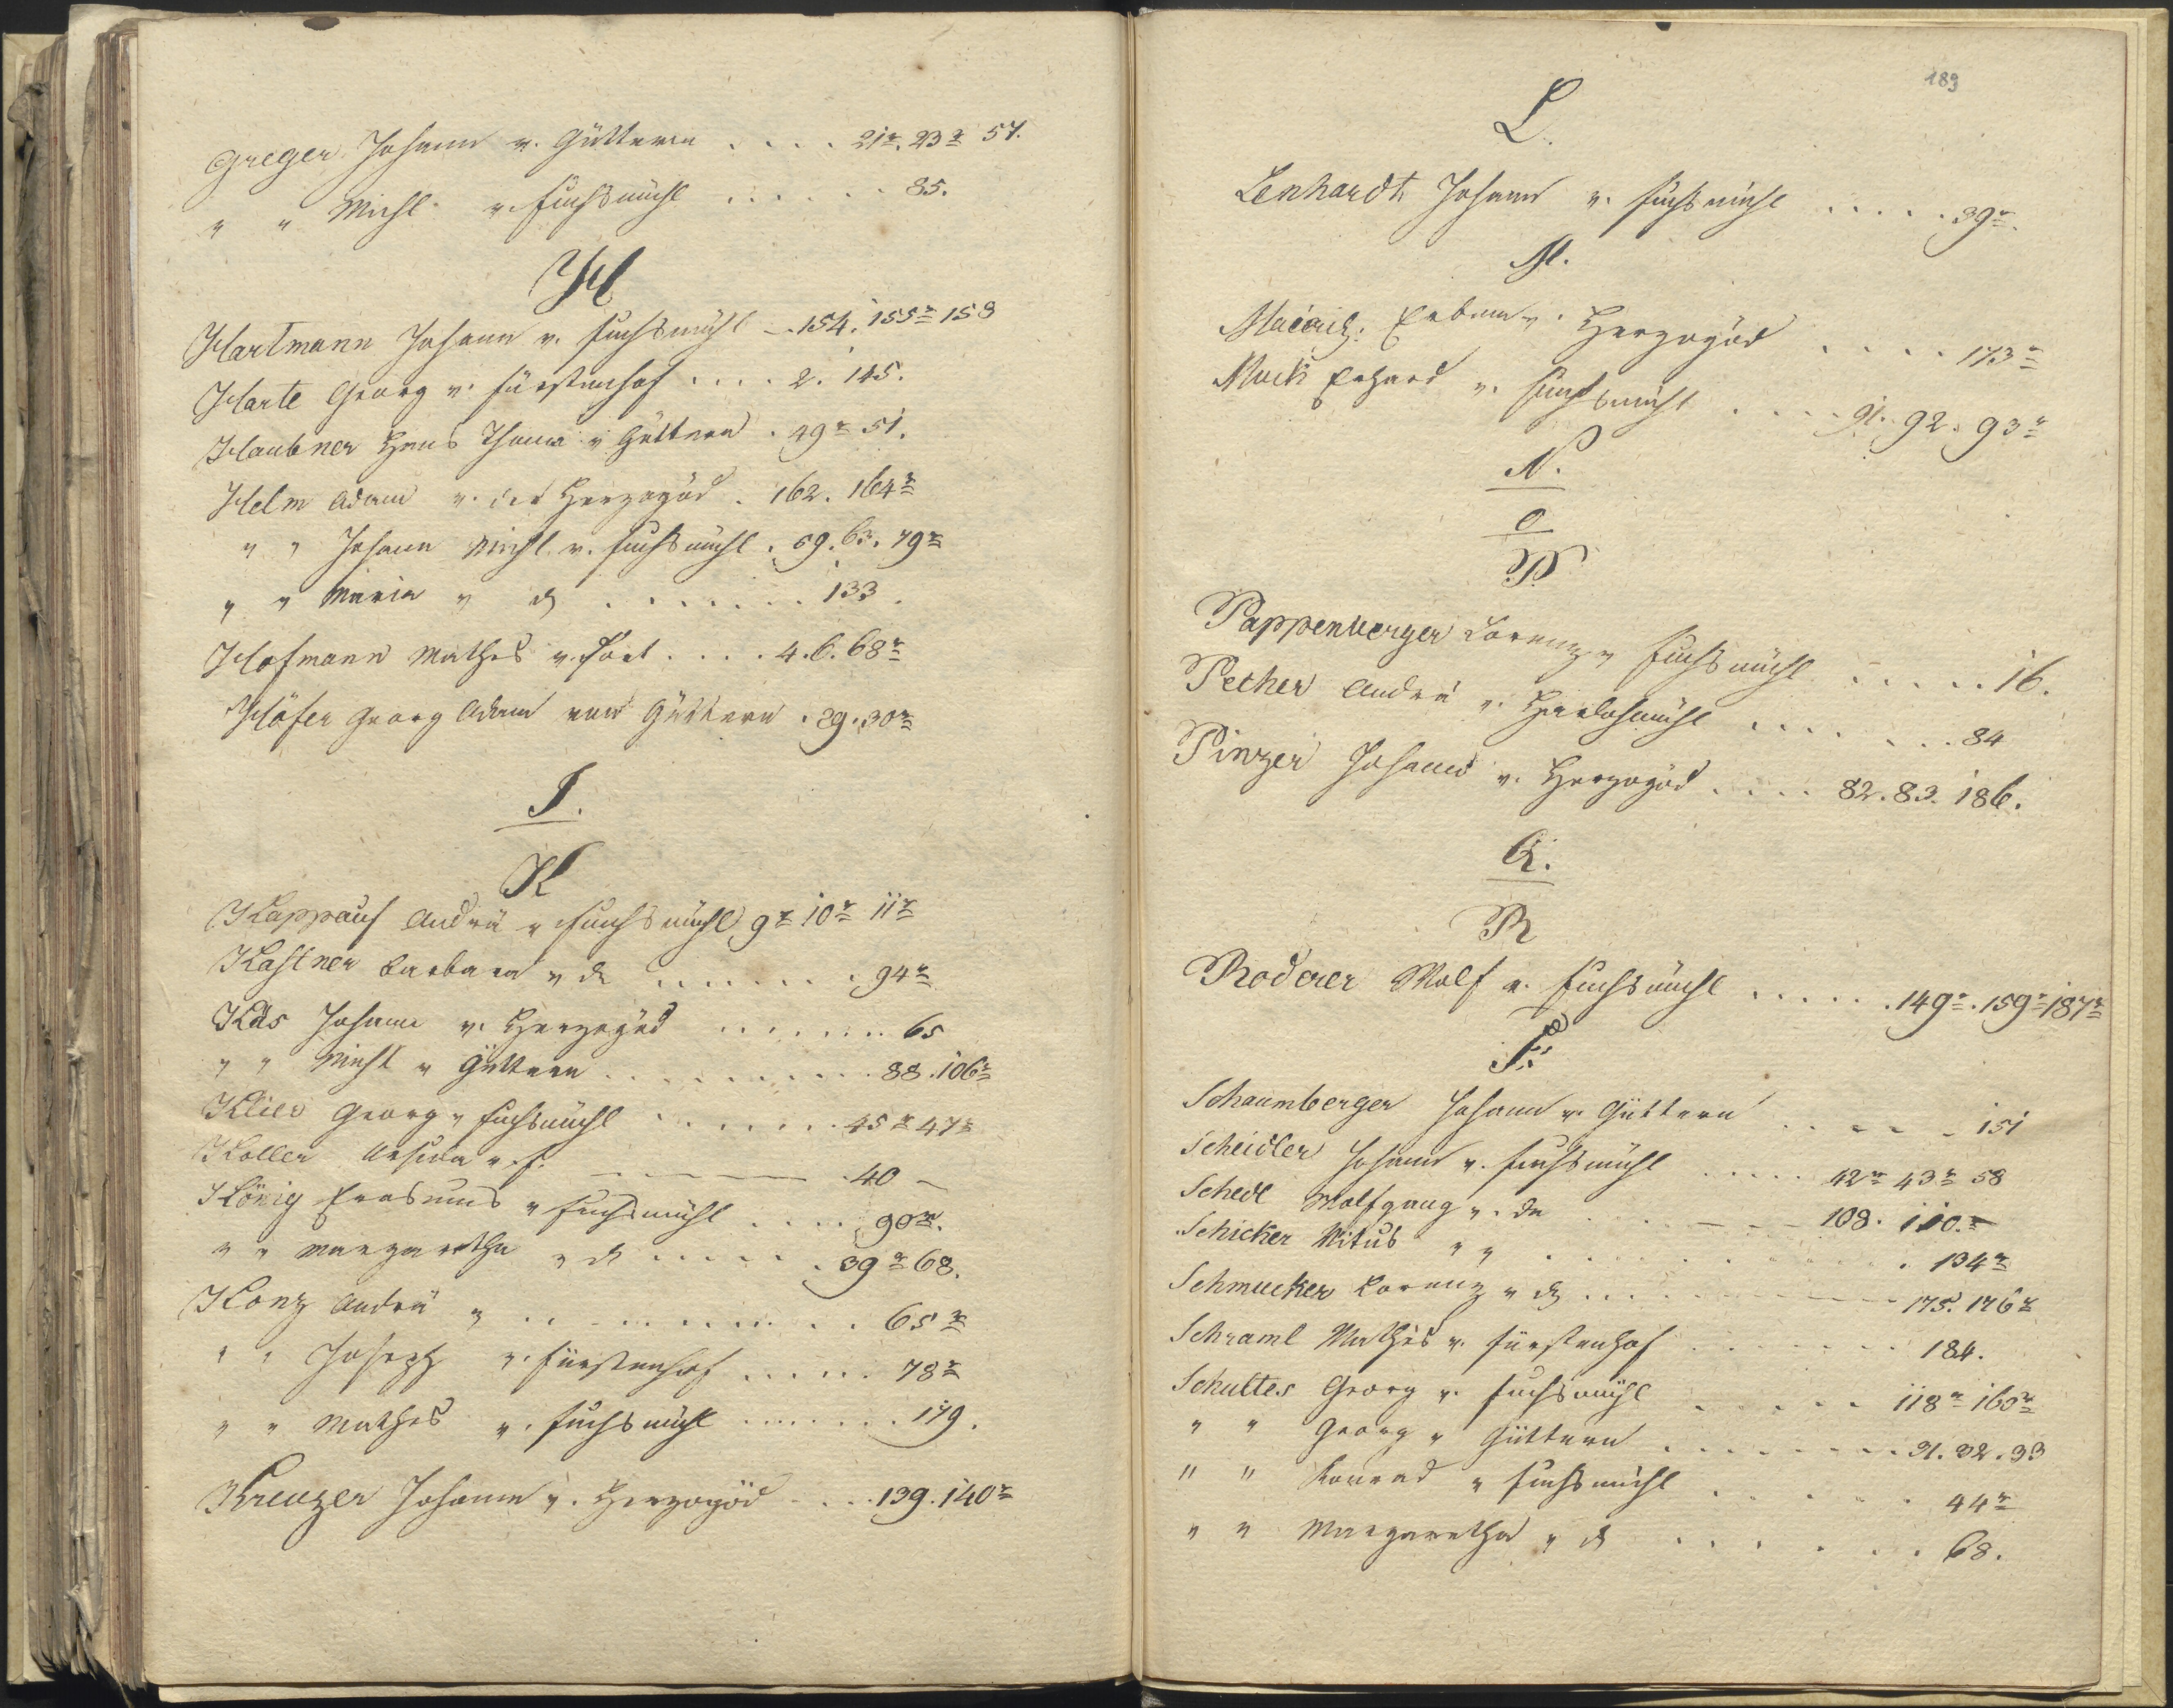 Greger Johann v. Güttern .... 21r. 23r 57.
" " Michl v. Fuchsmühl ...... 85.
H
Hartmann Johann v. Fuchsmühl - 154. 155r 158
Harte Georg v. Fürstenhof .... 2. 145.
Haubner Hans Thoma v Güttern . 49r 51.
Helm Adam v. der Herzogöd . 162. 164r
" " Johann Michl v. Fuchsmühl . 59. 63. 79r
" " Maria " do ........ 133.
Hofmann Mathes v. .... 4. 6. 68r
Höfer Georg Adam von Güttern . 29. 30r
I.
K
Kappauf Andrä v Fuchsmühl 9r 10r 11r
Kastner Barbara v do ........ 94r
Kås Johann v. Herzogöd ....... 65
" " Michl v Güttern .......... 88. 106r
Klier Georg v Fuchsmühl ....... 45r 47r
Koller v. f. .40 –
König Erasmus v Fuchsmühl .... 90r.
" " Margaretha v do ..... 39r 68.
Konz Andrä " ........... 65r
" " Joseph v. Fürstenhof ..... 78r
" " Mathes v. Fuchsmühl ....... 179.
Kreuzer Johann v. Herzogöd ... 139. 140r
189
L.
Lenhardt Johann v. Fuchsmühl ..... 39r.
M.
v. Herzogöd .... 173r
Mück Erhard v. Fuchsmühl .... 91. 92. 93r
N.
O
P.
Pappenberger Lorenz v Fuchsmühl ..... 16.
Pecher Andrä v. ....... 84
Pinzer Johann v. Herzogöd .... 82. 83. 186.
Q.
R
Roderer Wolf v. Fuchsmühl ...... 149r. 159r 187r
S.
Schaumberger Johann v. Güttern ..... 151
Scheidler Johann v. Fuchsmühl .... 42r 43r 58
Schedl Wolfgang v. do ..... 108. 110.r
Schicker Vitus " " ........ 134r
Schmucker Lorenz v do ... 175. 176r
Schraml Mathes v. Fürstenhof ....... 184.
Schultes Georg v. Fuchsmühl ..... 118r 160r
" " Georg v Güttern ........ 31. 32. 33
" " Konrad v Fuchsmühl ...... 44r
" " Margaretha v do ...... 68.